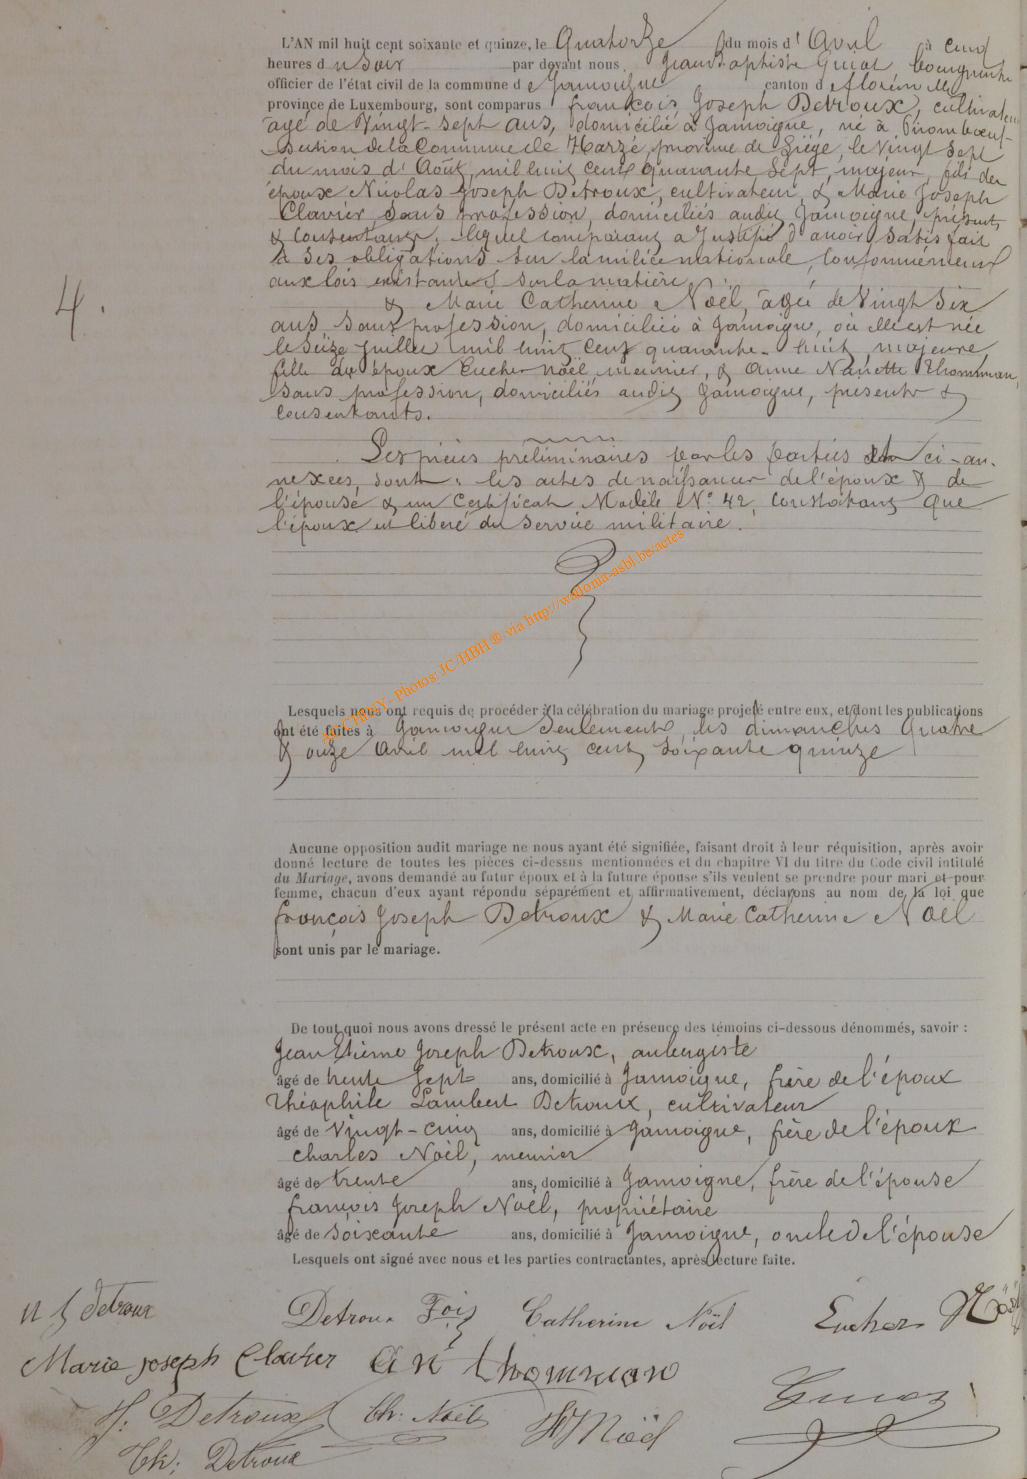 L'AN mil huit cent soixante et quinze, le Quatorze du mois d'Avril à cinq
heures du soir par devant nous, Jean Baptiste Guiot, bourgmestre
officier de l'état civil de la commune de Jamoigne canton de florenville
province de Luxembourg, sont comparus françois Joseph Detroux, cultivateur
agé de Vingt-sept ans, domicilié à Jamoigne, né à Pirombœuf
section de la Commune de Harzé, province de Liège, le Vingt Sept
du mois d'Août, mil huit cent quarante Sept, majeur, fils des
époux Nicolas Joseph Detroux, cultivateur, & Marie Joseph
Clavier, sans profession, domiciliés audit Jamoigne, présents
& consentants, lequel comparant a Justifié d'avoir satisfait
à ses obligations sur la milice nationale, conformément
aux lois existantes sur la matière.
& Marie Catherine Noël, agée de Vingt Six
ans, sans profession, domiciliée à Jamoigne, où elle est née
le Seize Juillet mil huit cent quarante-huit, majeure,
fille des époux Eucher Noël, meunier, & Anne Nanette Thommman,
sans profession, domiciliés audit Jamoigne, présents &
consentants.
Les pièces préliminaires par les parties ci-an-
nexées, sont: les actes de naissance de l'époux & de
l'épouse & un Certificat Modèle N° 42, constatant que
l'époux est libéré du service militaire.
4.
JC/HBH ® via http://wallonia-asbl.be/actes
Lesquels nous ont requis de procéder à la célébration du mariage projeté entre eux, et dont les publications
ont été faites à Jamoigne Seulement, les dimanches quatre
& onze avril mil huit cent soixante quinze
Aucune opposition audit mariage ne nous ayant été signifiée, faisant droit à leur réquisition, après avoir
donné lecture de toutes les pièces ci-dessus mentionnées et du chapitre VI du titre du Code civil intitulé
du Mariage, avons demandé au futur époux et à la future épouse s'ils veulent se prendre pour mari et pour
femme, chacun d'eux ayant répondu séparément et affirmativement, déclarons au nom de la loi que
françois Joseph Detroux & Marie Catherine Noël
sont unis par le mariage.
De tout quoi nous avons dressé le présent acte en présence des témoins ci-dessous dénommés, savoir :
Jean Etienne Joseph Detroux, aubergiste
âgé de trente Sept ans, domicilié à Jamoigne, frère de l'époux
Théophile Lambert Detroux, cultivateur
âgé de Vingt-cinq ans, domicilié à Jamoigne, frère de l'époux
charles Noël, meunier
âgé de trente ans, domicilié à Jamoigne, frère de l'épouse
françois Joseph Noël, propriétaire
âgé de soixante ans, domicilié à Jamoigne, oncle de l'épouse
Lesquels ont signé avec nous et les parties contractantes, après lecture faite.
N J Detroux Detroux Fois Catherine Noël Eucher Noël
Marie joseph Clavier an thommman
J. Detroux Ch. Noël Noël Guiot
Th. Detroux